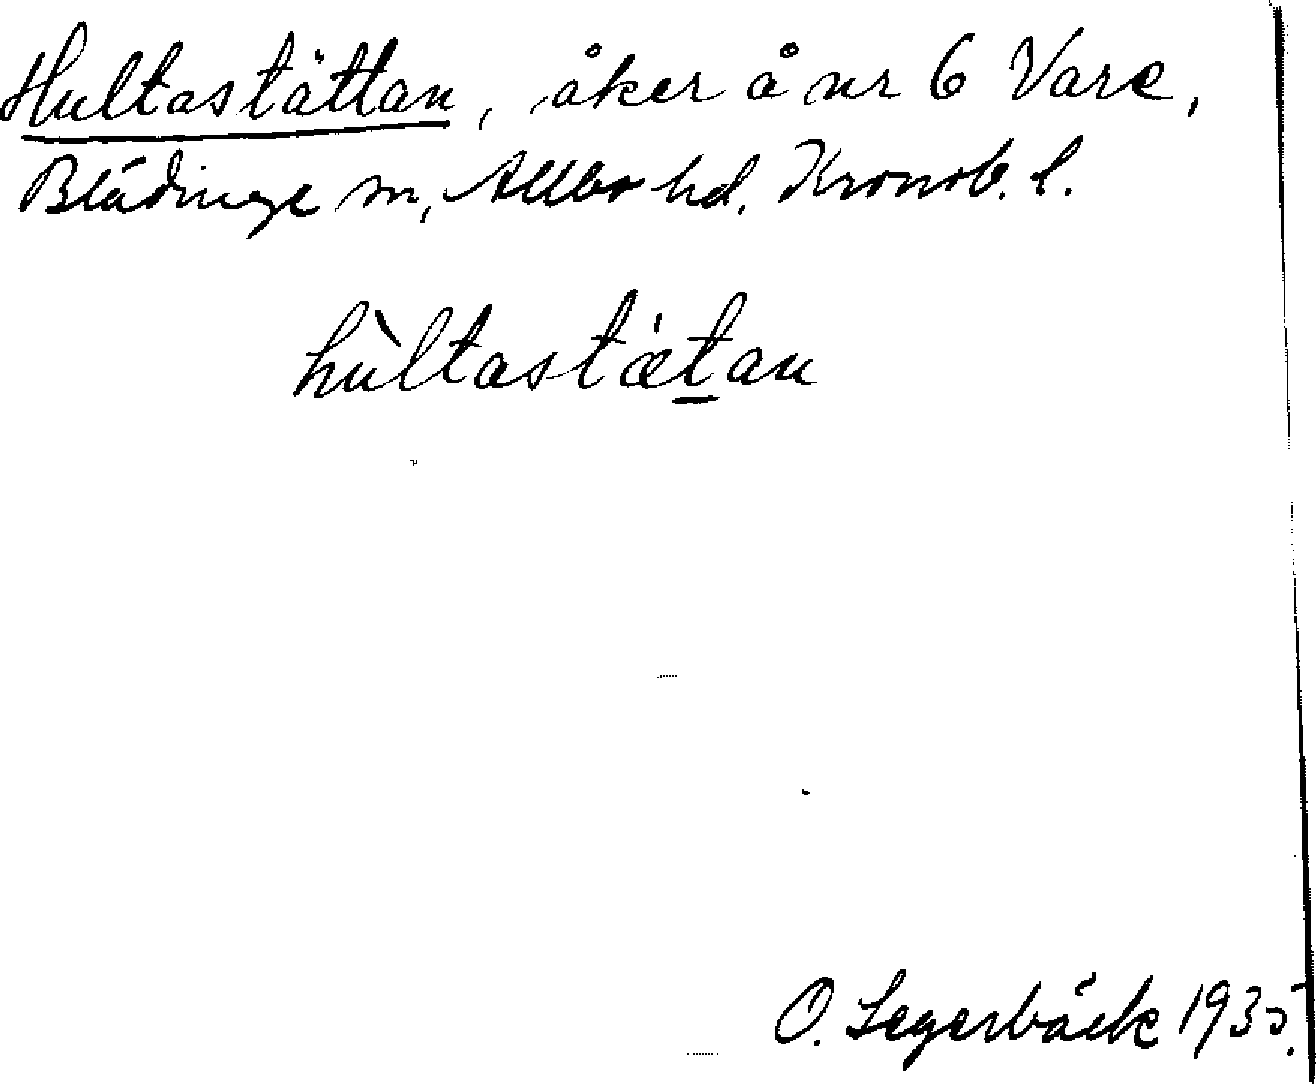 Hultastättan, åker å nr 6 Vare,
Blädinge sn, Allbo hd. Kronob. l.
hùltastǽt̲an
O. Segerbäck 1935.